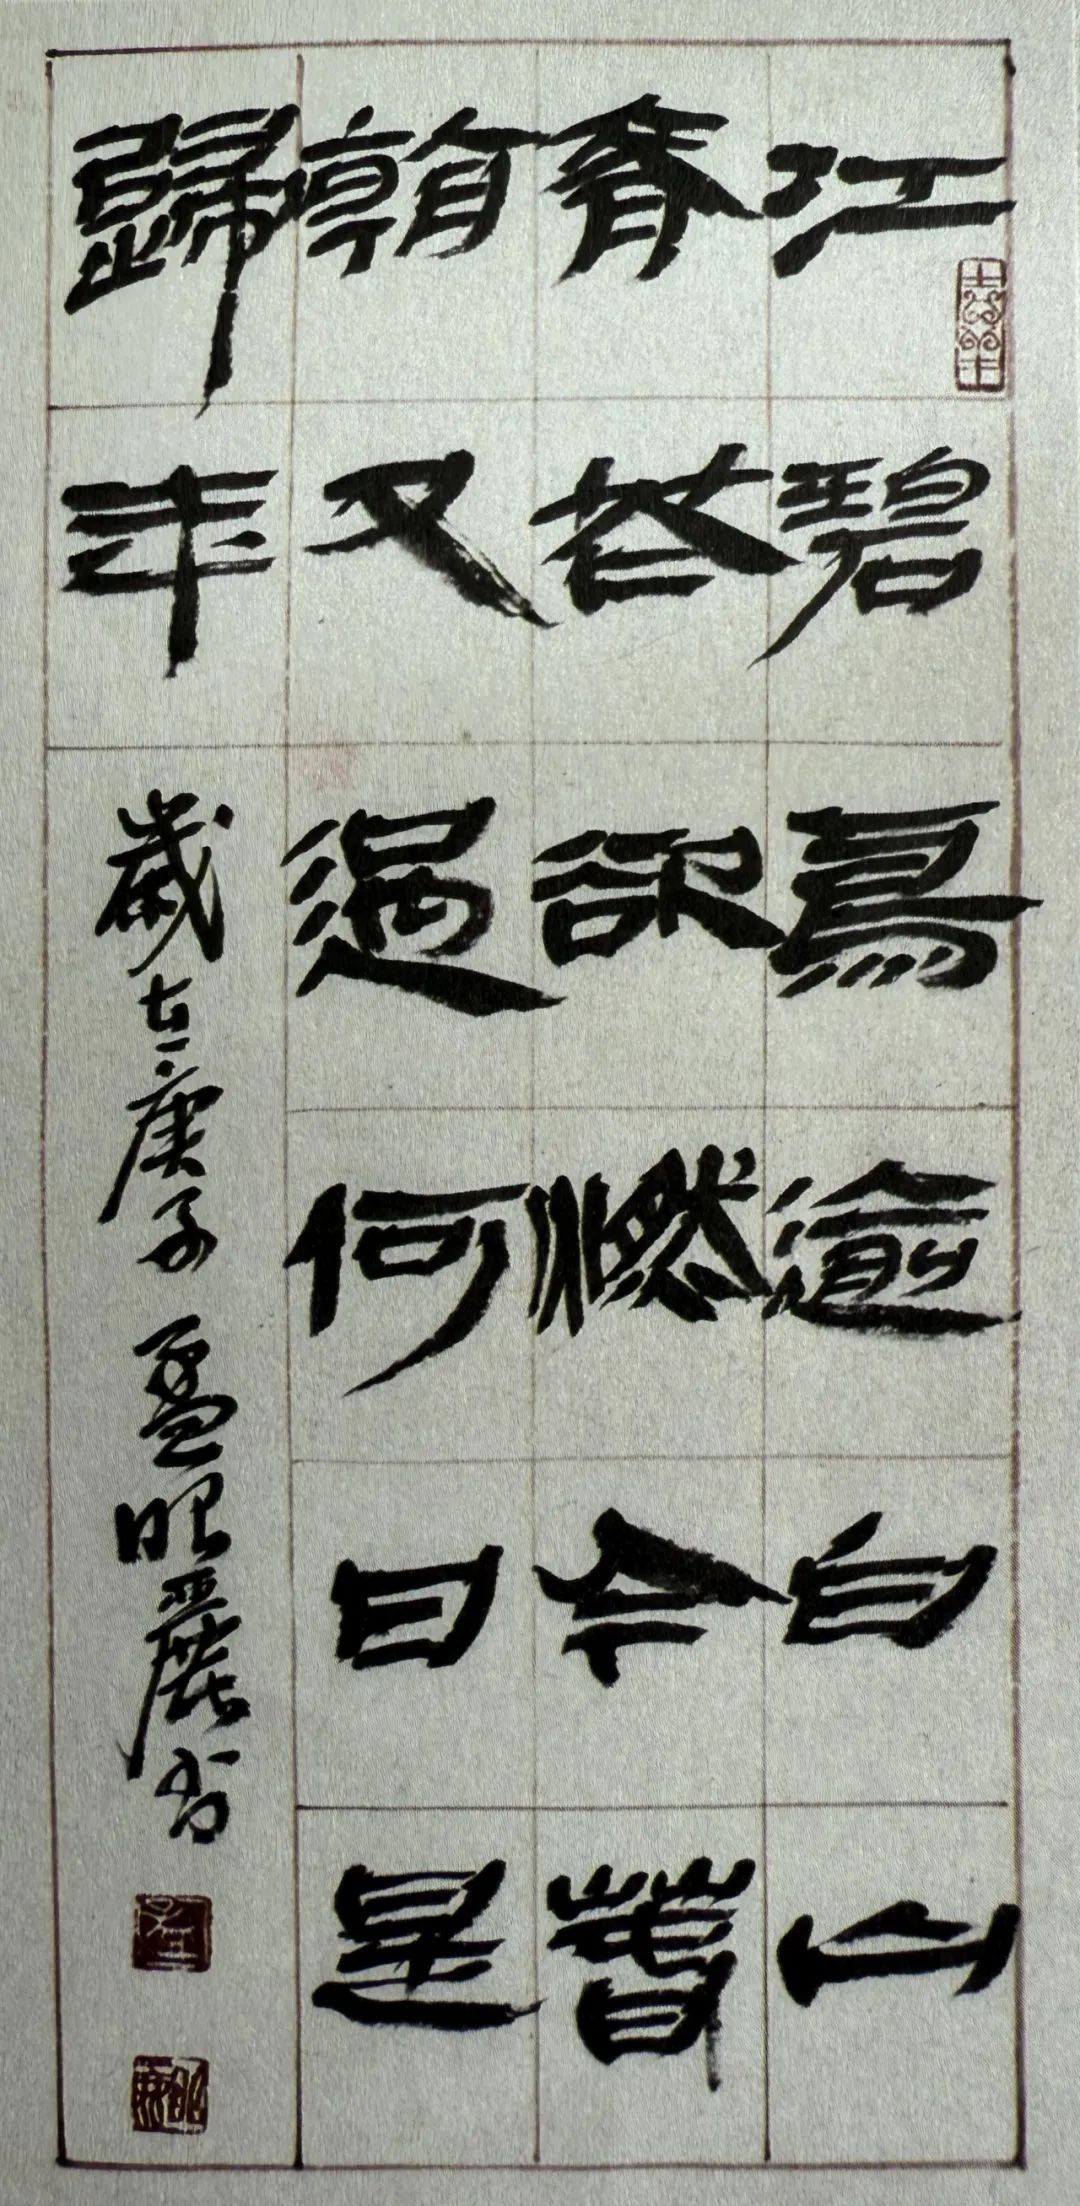 江碧鳥逾白山
青花欲燃今春
看又過何日是
歸年
歲在庚子孟昭麗書